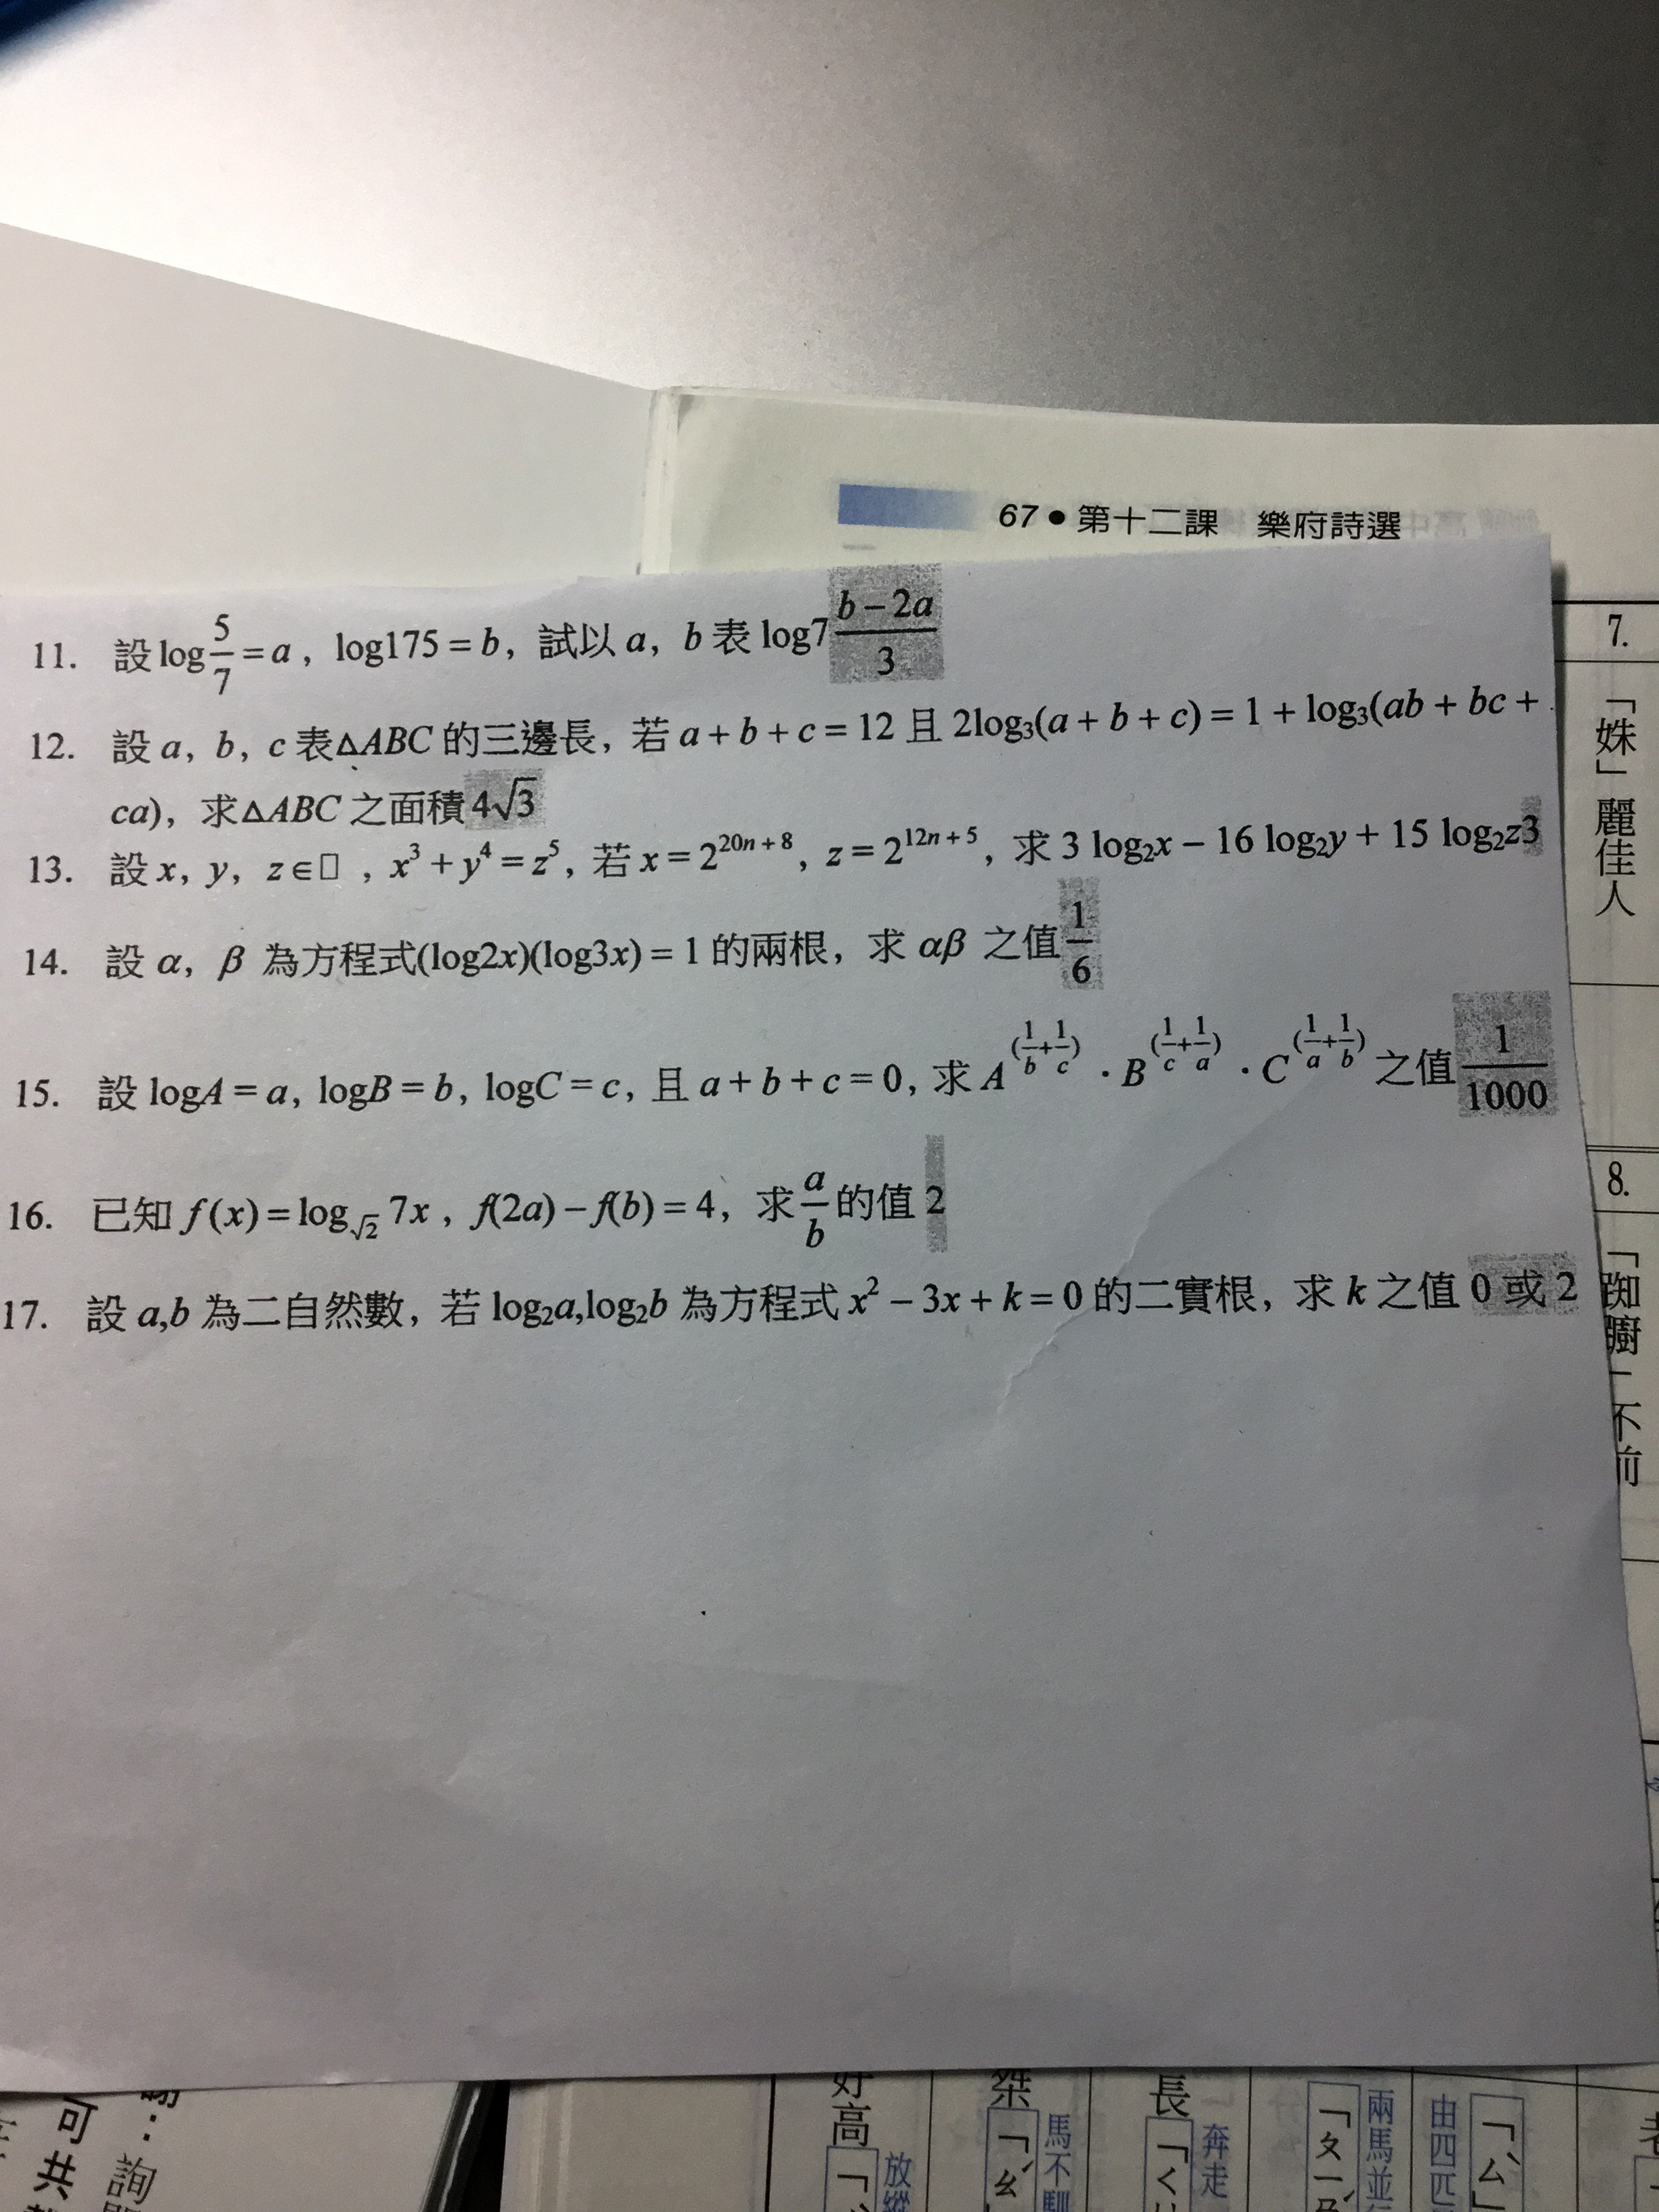 67●第十二課 樂府詩選
11. 設log 5/7 = a, log175 = b, 試以 a, b 表 log7 (b-2a)/3
12. 設 a, b, c 表△ABC 的三邊長, 若 a + b + c = 12 且 2log₃(a + b + c) = 1 + log₃(ab + bc +
ca), 求△ABC 之面積 4√3
13. 設 x, y, z∈□ , x³ + y⁴ = z⁵, 若 x = 2^(20n + 8), z = 2^(12n + 5), 求 3 log₂x − 16 log₂y + 15 log₂z 3
14. 設 α, β 為方程式(log2x)(log3x) = 1 的兩根, 求 αβ 之值 1/6
15. 設 logA = a, logB = b, logC = c, 且 a + b + c = 0, 求 A^(1/b+1/c) · B^(1/c+1/a) · C^(1/a+1/b) 之值 1/1000
16. 已知 f (x) = log_√2 7x , f(2a) − f(b) = 4, 求 a/b 的值 2
17. 設 a,b 為二自然數, 若 log₂a,log₂b 為方程式 x² − 3x + k = 0 的二實根, 求 k 之值 0 或 2
7.
「姝」麗佳人
8.
「踟躕」不前
好高
放縱
桀
馬不馴
長
奔走
兩馬並行
由四匹
可共
詢